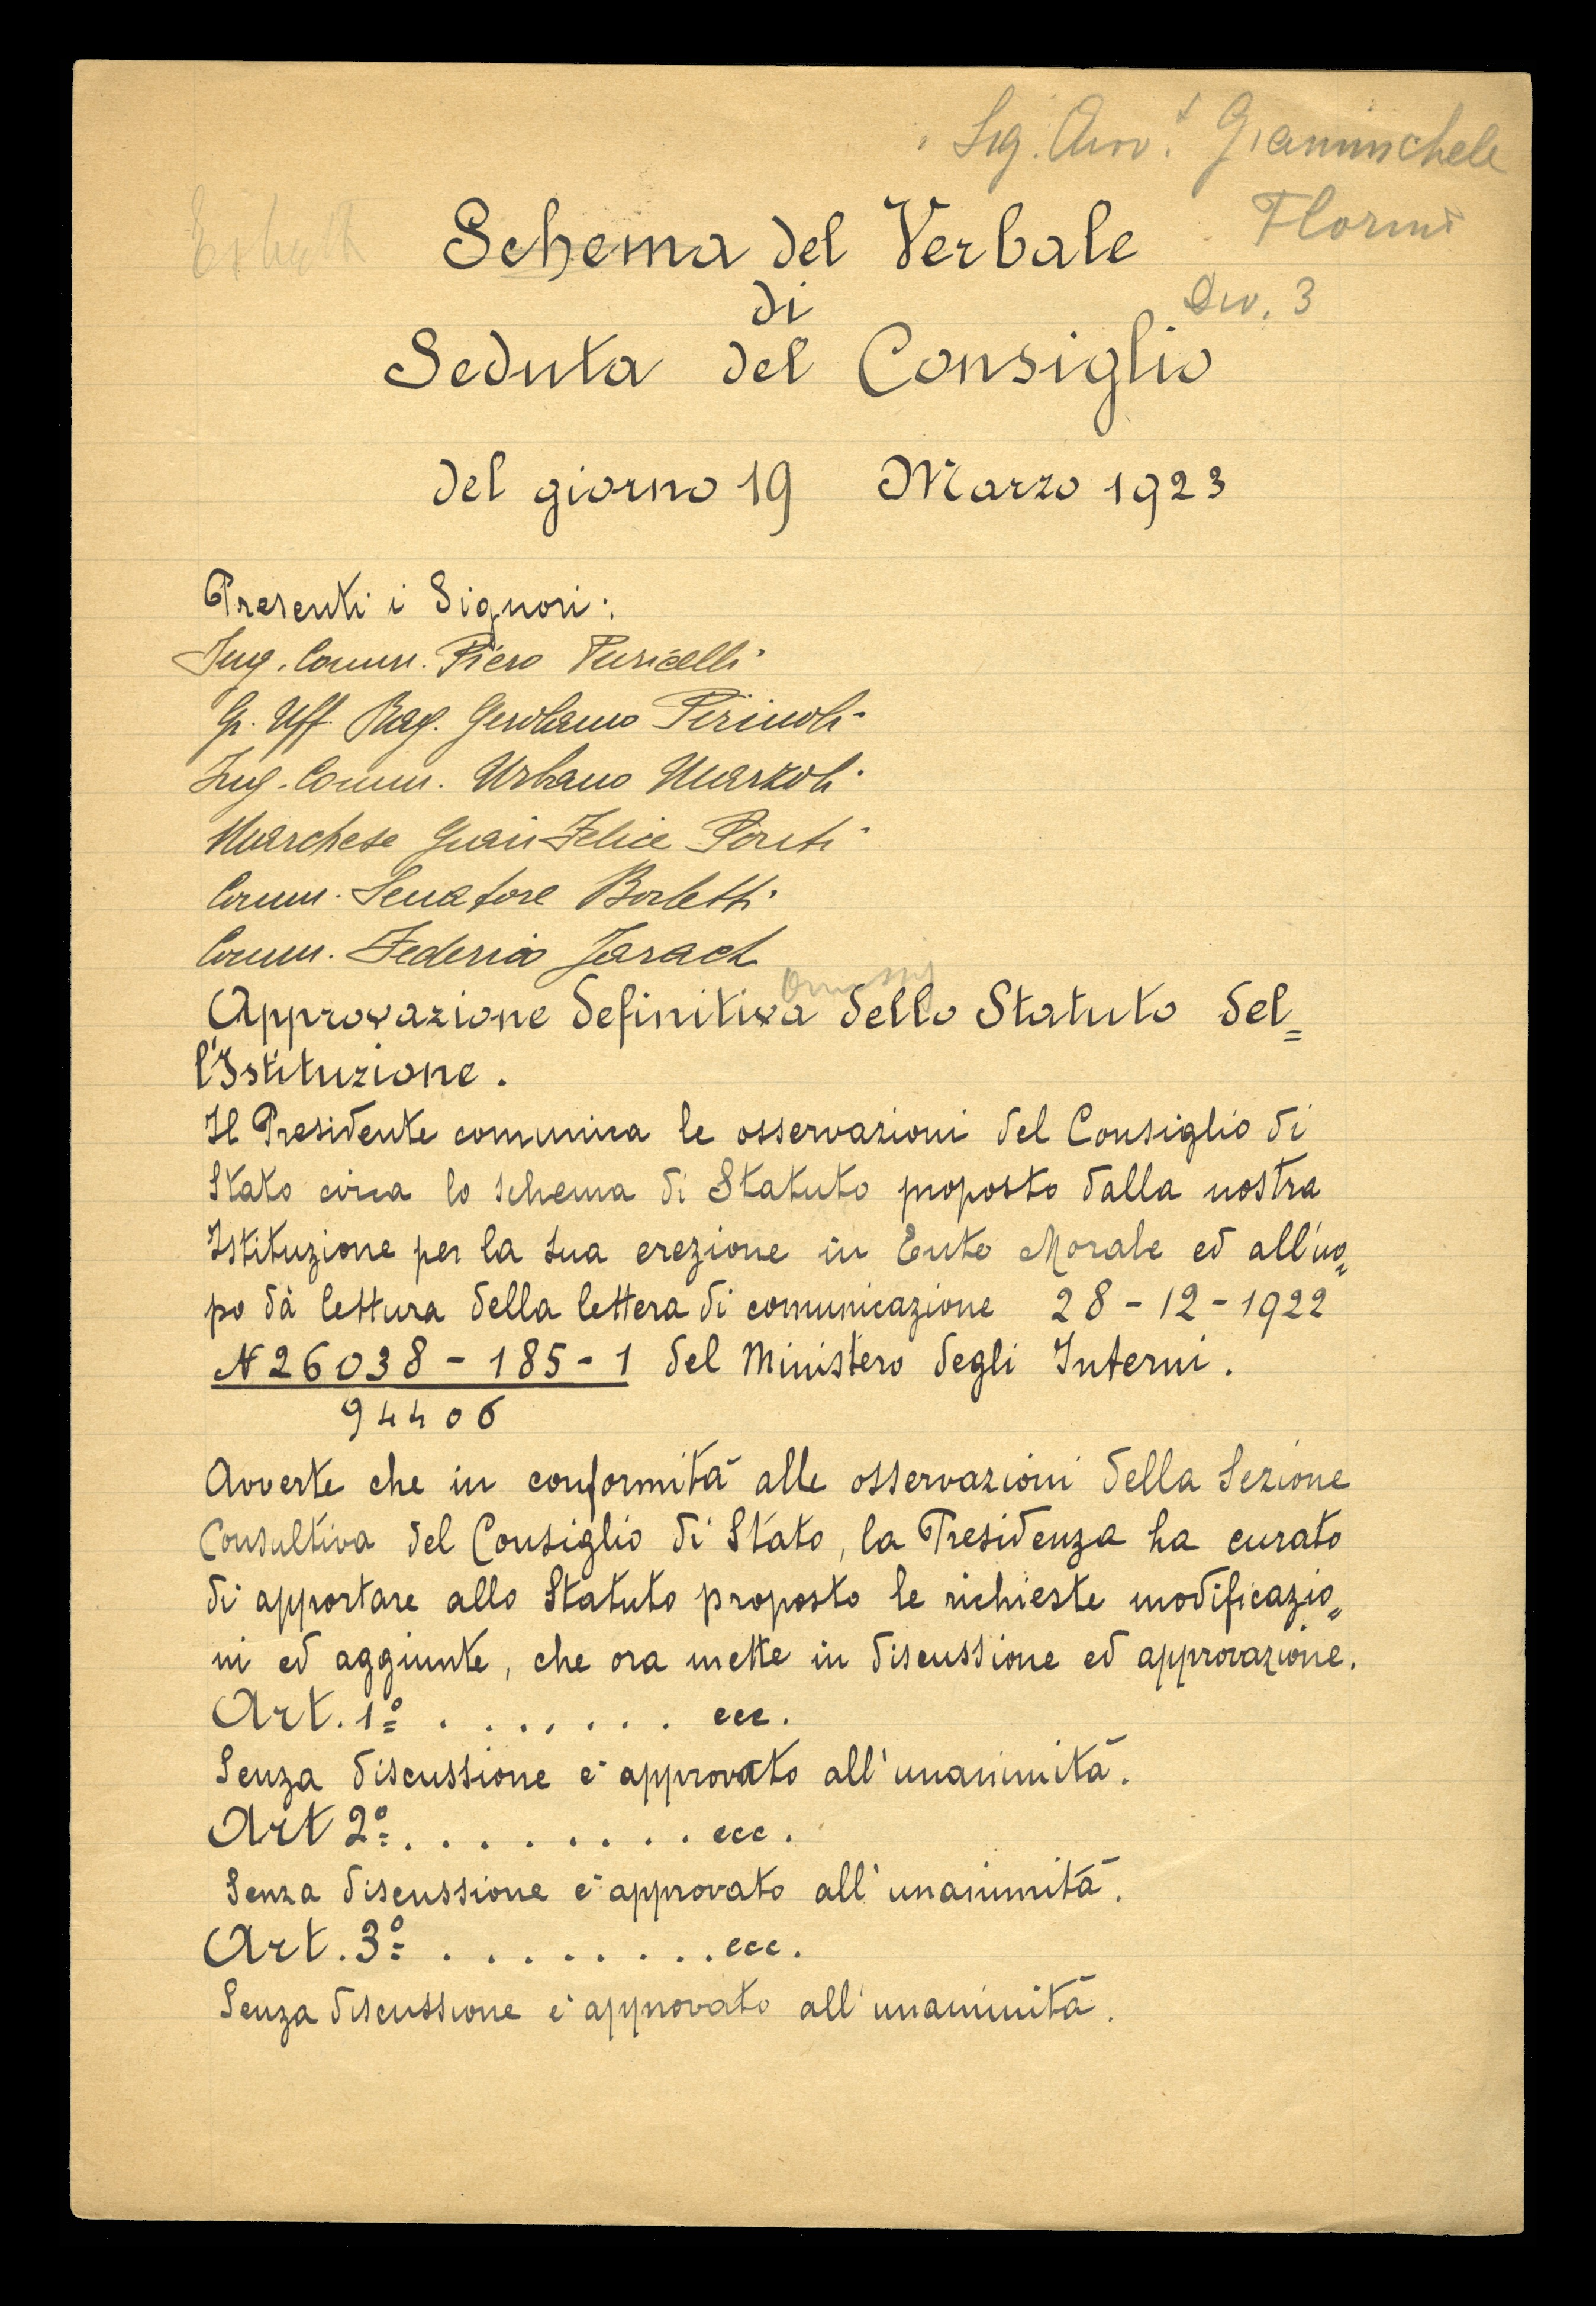 Sig. Avv.t Giammichele
Schema del Verbale
di
Seduta del Consiglio
Div. 3
del giorno 19 Marzo 1923
Presenti i Signori:
Ing. Comm. Piero Puricelli
Gr. Uff. Rag. Gerolamo Pirinoli
Ing. Comm. Urbano Marzoli
Marchese Gian Felice Ponti
Comm. Senatore Borletti
Comm. Federico Jarach
Approvazione definitiva dello Statuto del=
l'Istituzione.
Il Presidente comunica le osservazioni del Consiglio di
Stato circa lo schema di Statuto proposto dalla nostra
Istituzione per la sua erezione in Ente Morale ed all'uo=
po dà lettura della lettera di comunicazione 28-12-1922
N 26038-185-1 del Ministero degli Interni.
94406
Avverte che in conformità alle osservazioni della Sezione
Consultiva del Consiglio di Stato, la Presidenza ha curato
di apportare allo Statuto proposto le richieste modificazio=
ni ed aggiunte, che ora mette in discussione ed approvazione.
Art. 1º . . . . . . . ecc.
Senza discussione è approvato all'unanimità.
Art 2º . . . . . . . . ecc.
Senza discussione è approvato all'unanimità.
Art. 3º . . . . . . . . ecc.
Senza discussione è approvato all'unanimità.